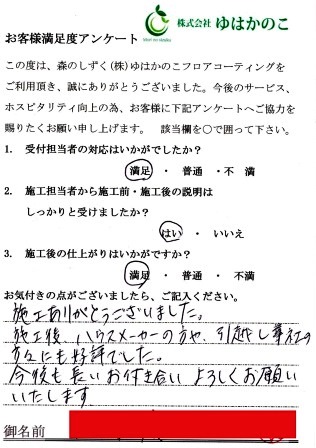 株式会社 ゆはかのこ
お客様満足度アンケート
この度は、森のしずく(株)ゆはかのこフロアコーティングを
ご利用頂き、誠にありがとうございました。今後のサービス、
ホスピタリティ向上の為、お客様に下記アンケートへご協力を
賜りたくお願い申し上げます。 該当欄を〇で囲って下さい。
1. 受付担当者の対応はいかがでしたか?
満足 ・ 普通 ・不 満
2. 施工担当者から施工前・施工後の説明は
しっかりと受けましたか?
はい ・ いいえ
3. 施工後の仕上がりはいかがですか?
満足 ・ 普通 ・ 不満
お気付きの点がございましたら、ご記入ください。
施工ありがとうございました。
施工後、ハウスメーカーの方や、引越し業社の
方々にも好評でした。
今後も長いお付き合いよろしくお願い
いたします
御名前